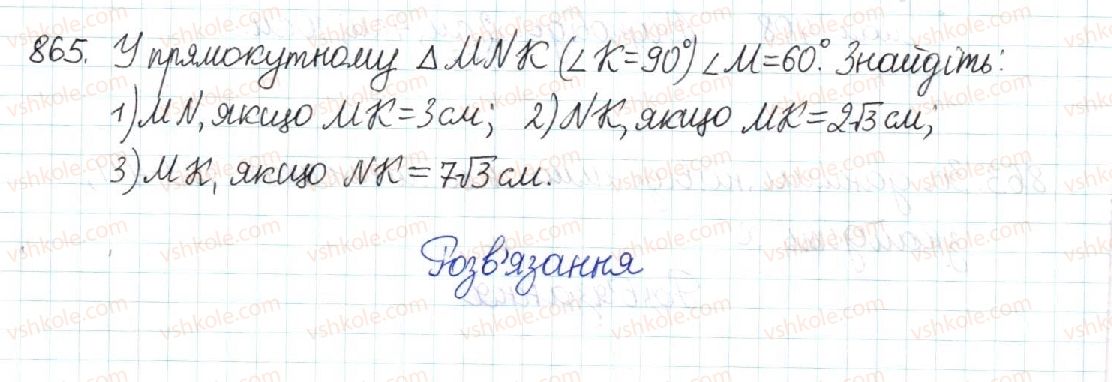 865. У прямокутному △MNK (∠K=90°) ∠M=60°. Знайдіть:
1) MN, якщо MK=3см; 2) NK, якщо MK=2√3 см;
3) MK, якщо NK=7√3 см.
Розв'язання